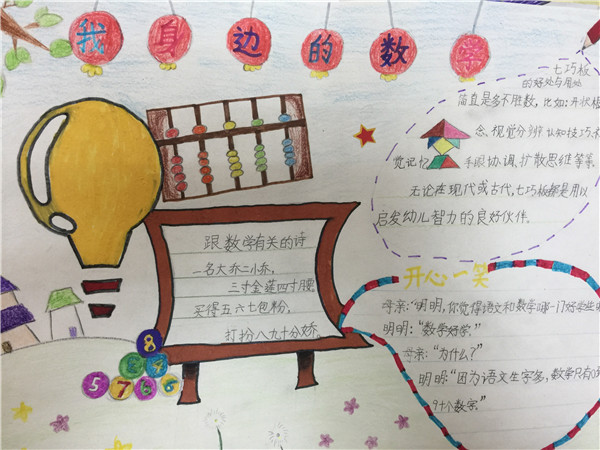 我身边的数学
七巧板
的好处与用处
简直是多不胜数，比如：形状概
念、视觉分辨、认知技巧、视
觉记忆、手眼协调、扩散思维等等。
无论在现代或古代，七巧板都是用以
启发幼儿智力的良好伙伴。
跟数学有关的诗
一名大乔二小乔，
三寸金莲四寸腰，
买得五六七包粉，
打扮八九十分娇。
开心一笑
母亲：“明明，你觉得语文和数学哪一门好学些
明明：“数学好学。”
母亲：“为什么？”
明明：“因为语文生字多，数学只有0
9十个数字。”
8
5
7
6
6